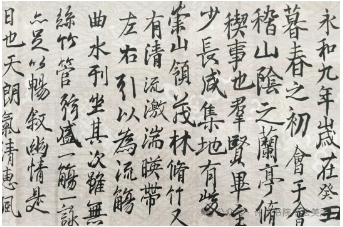 永和九年歲在癸丑
暮春之初會于會
稽山陰之蘭亭脩
禊事也羣賢畢至
少長咸集地有峻
崇山領茂林脩竹又
有清流激湍暎帶
左右引以為流觴
曲水列坐其次雖無
絲竹管弦盛一觴一詠
亦足以暢敘幽情是
日也天朗氣清惠風